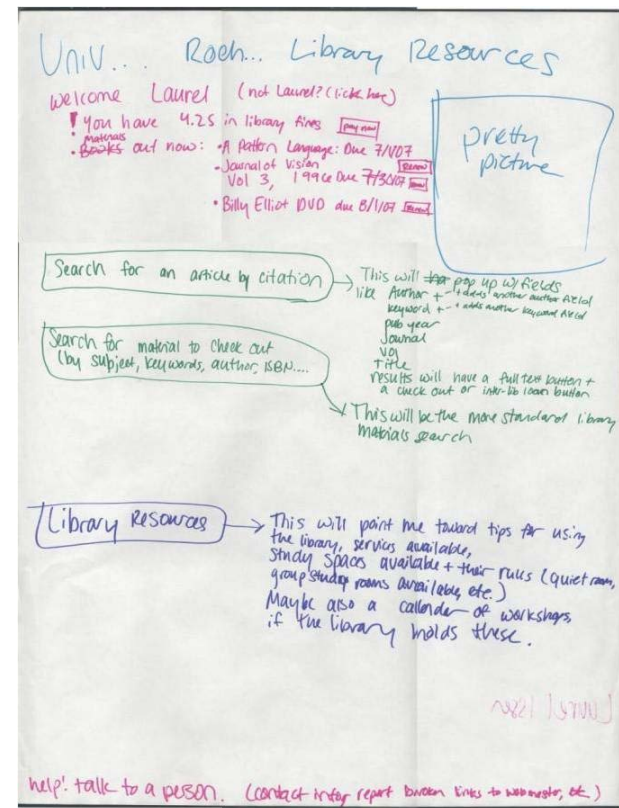 Univ... Roch... Library Resources
Welcome Laurel (not Laurel? Click here)
! You have 4.25 in library fines pay now
materials
• Books out now: • A Pattern Language: Due 7/1/07
• Journal of Vision Renew
Vol 3, Due 7/30/07
• Billy Elliot DVD due 8/1/07 Renew
pretty
picture
Search for an article by citation
This will pop up w/ fields
like Author + - + adds another author field
keyword + - + adds another keyword field
pub year
Journal
Vol
Title
results will have a full text button +
a check out or inter-lib loan button
Search for material to check out
(by subject, keywords, author, ISBN....
This will be the more standard library
materials search
Library Resources
This will point me toward tips for using
the library, services available,
study spaces available + their rules (quiet room,
group study rooms available, etc.)
Maybe also a callender of workshops
if the library holds these.
help! talk to a person. (contact info, report broken links to webmaster, etc.)